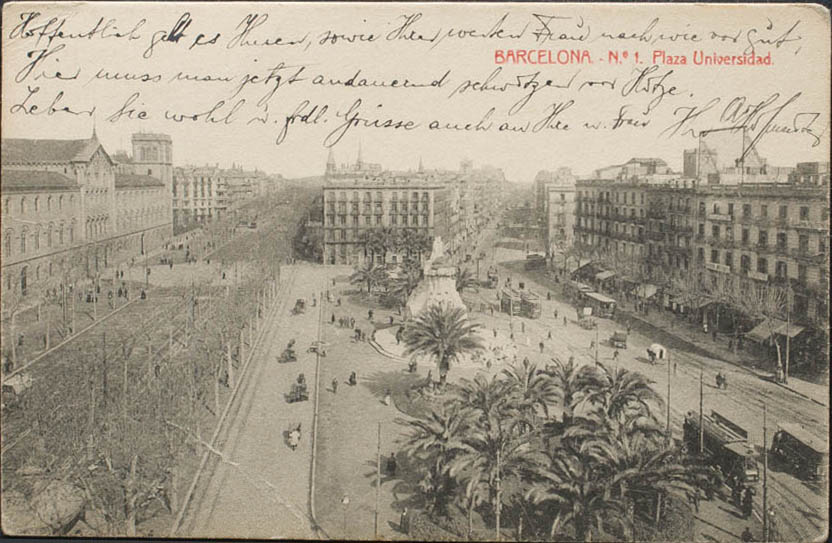 Hoffentlich geht es Ihnen, sowie Ihrer werten Frau nach wie vor gut,
BARCELONA - N.º 1. Plaza Universidad.
Hier muss man jetzt andauernd schwitzen vor Hitze.
Leben Sie wohl u. frdl. Grüsse auch an Ihre w. Frau Ihr